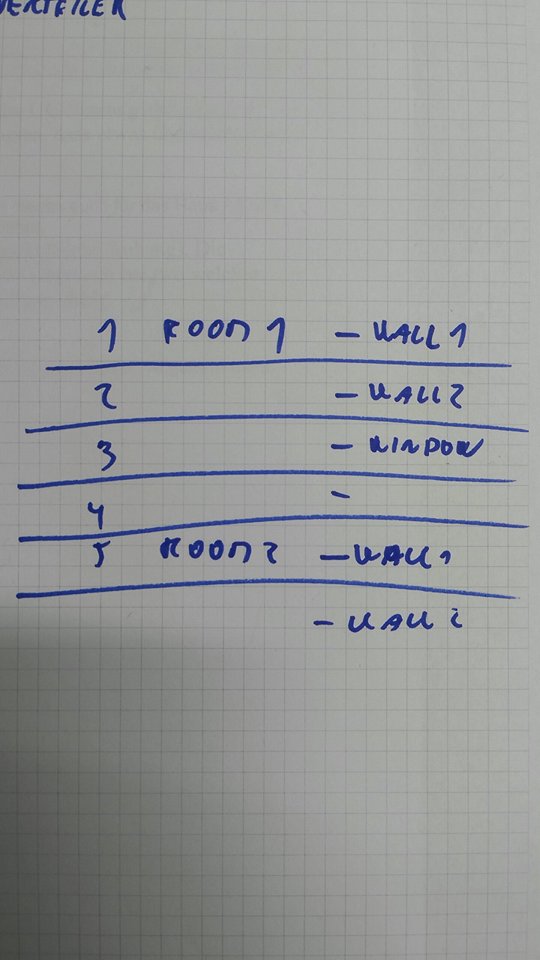 1 ROOM 1 - WALL 1
2 - WALL 2
3 - WINDOW
4 -
5 ROOM 2 - WALL 1
- WALL 2